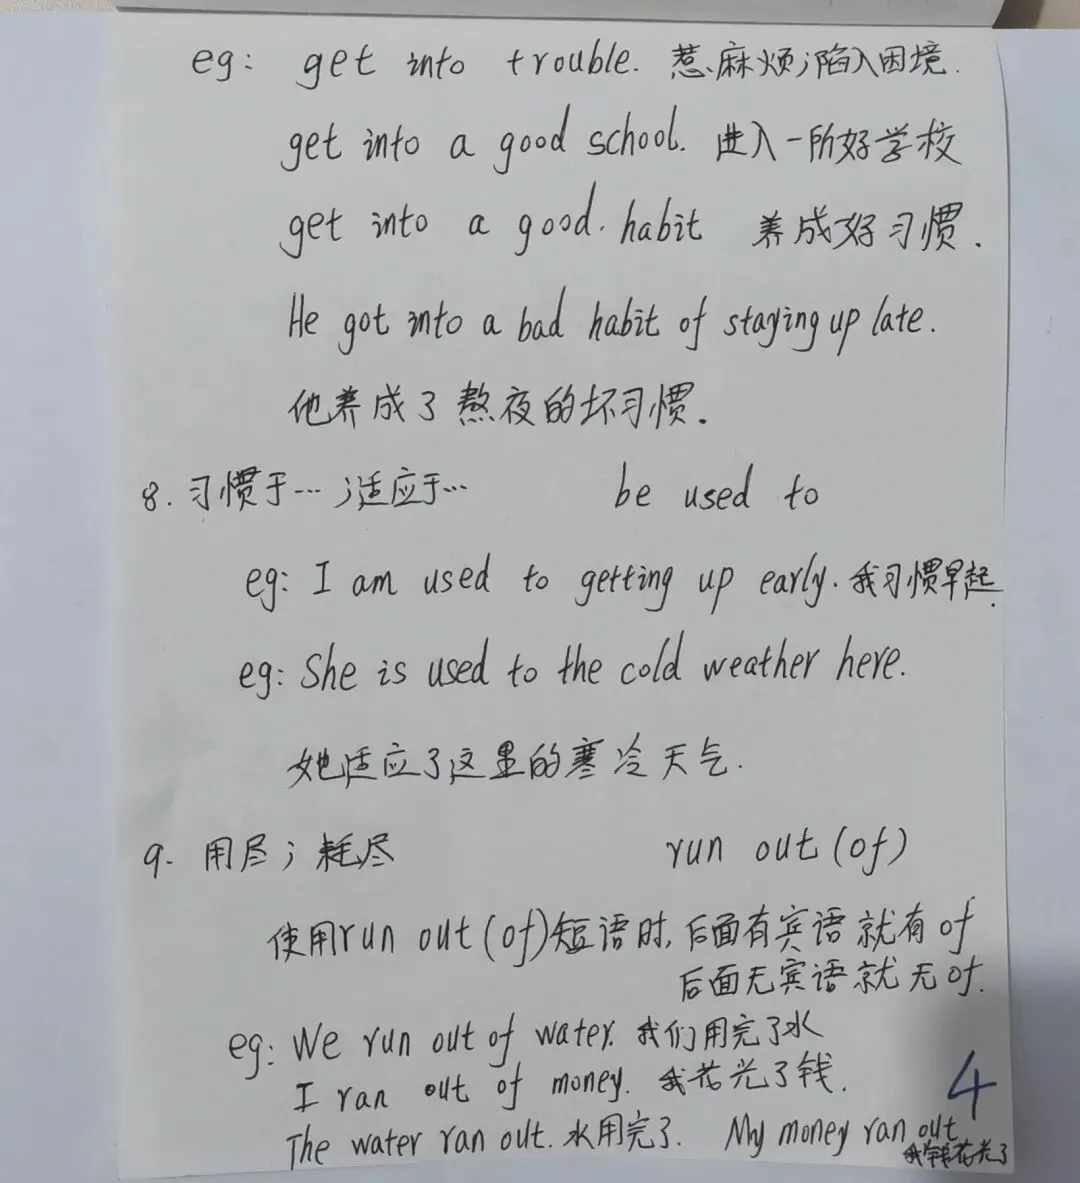 eg: get into trouble. 惹麻烦;陷入困境.
get into a good school. 进入一所好学校
get into a good. habit 养成好习惯.
He got into a bad habit of staying up late.
他养成了熬夜的坏习惯.
8. 习惯于…;适应于… be used to
eg: I am used to getting up early. 我习惯早起.
eg: She is used to the cold weather here.
她适应了这里的寒冷天气.
9. 用尽;耗尽 run out (of)
使用run out (of)短语时,后面有宾语就有of
后面无宾语就无of.
eg: We run out of water. 我们用完了水
I ran out of money. 我花光了钱.
The water ran out. 水用完了. My money ran out
我钱花光了
4